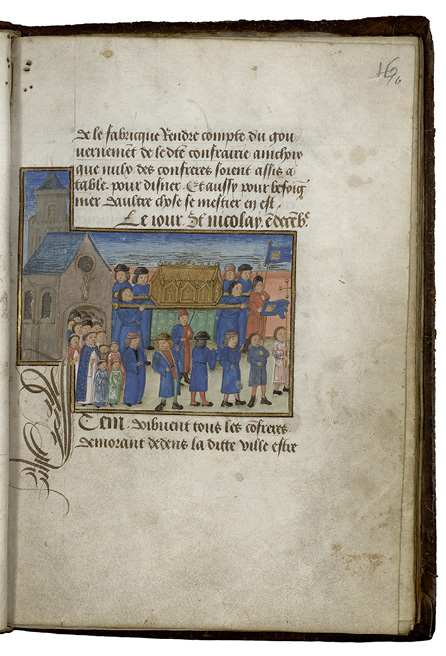 de le fabricque Rendre compte du gou
uernement de le dte confrairie ainchoiz
que nulz des confreres soient assis a
table pour disner. Et aussy pour besoig
nier daultre chose se mestier en est.
Le iour St nicolay. e decebre.
Item. doibuent tous les cofreres
demorant dedens la ditte ville estre